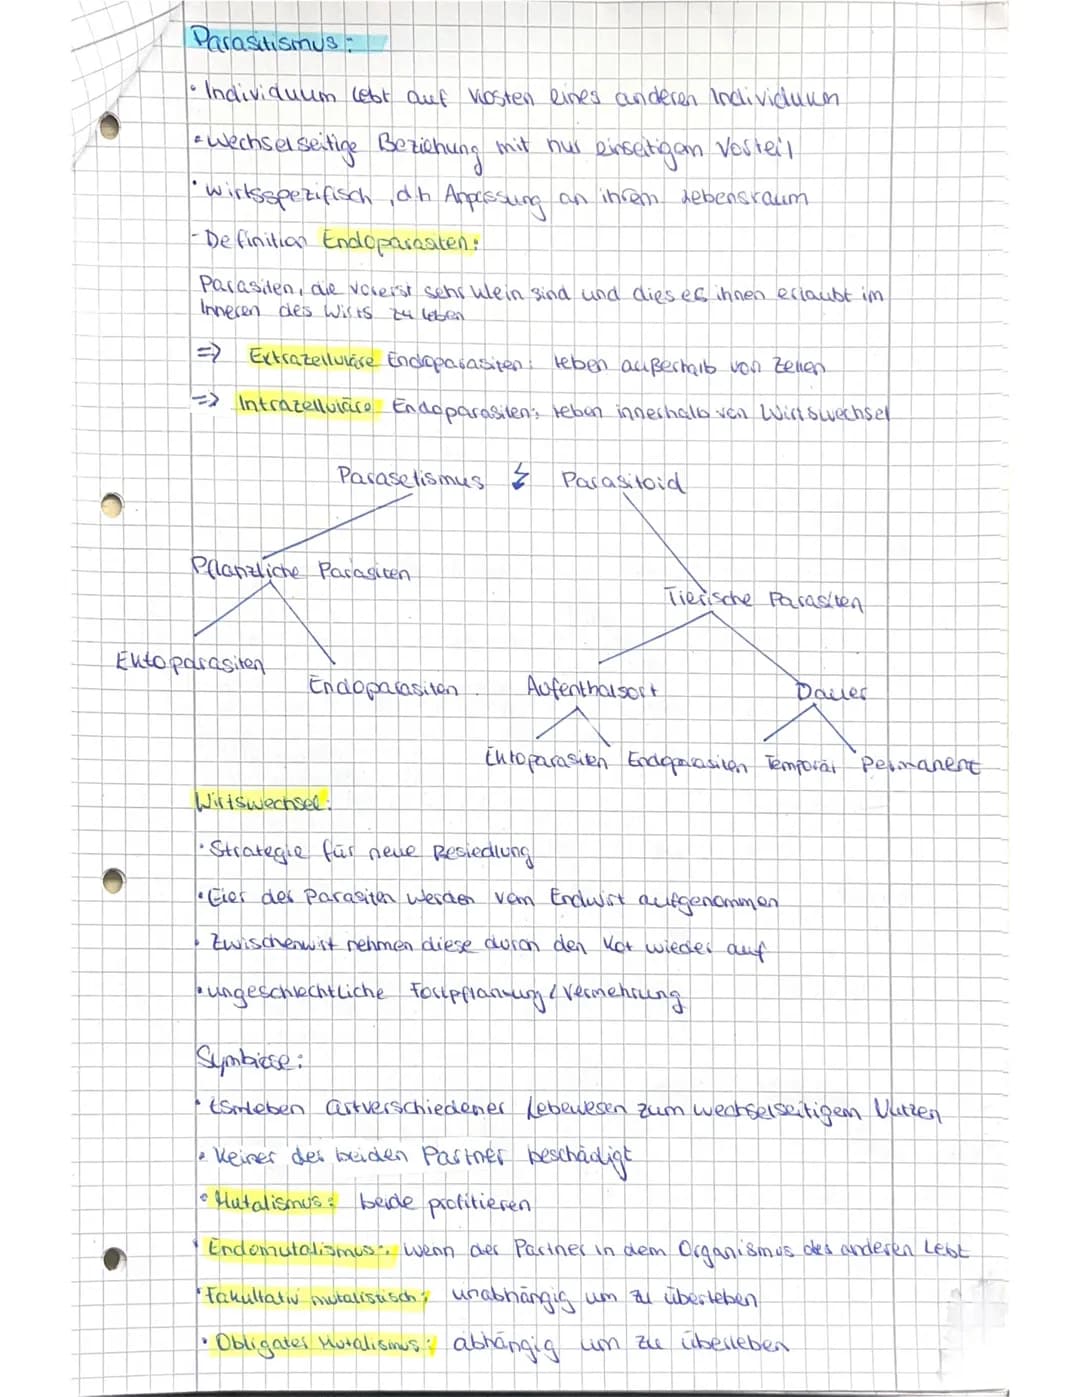 Parasitismus:
• Individuum lebt auf Kosten eines anderen Individuum
• Wechselseitige Beziehung mit nur einseitigem Vorteil
• wirtsspezifisch, d.h Anpassung an ihrem Lebensraum
- Definition Endoparasiten:
Parasiten, die vorerst sehr klein sind und dieses ihnen erlaubt im
Inneren des Wirts zu leben
=> Extrazelluläre Endoparasiten: leben außerhalb von Zellen
=> Intrazelluläre Endoparasiten: leben innerhalb von Wirtswechsel
Paraselismus ↯ Parasitoid
Pflanzliche Parasiten
Tierische Parasiten
Ektoparasiten
Endoparasiten
Aufenthalsort
Dauer
Ektoparasiten Endoparasiten Temporär Permanent
Wirtswechsel:
• Strategie für neue Besiedlung
• Eier des Parasiten werden vom Endwirt aufgenommen
• Zwischenwirt nehmen diese durch den Kot wieder auf
• ungeschlechtliche Fortpflanzung / Vermehrung
Symbiose:
• artverschiedener Lebewesen zum wechselseitigem Nutzen
• Keiner der beiden Partner beschädigt
• Mutalismus: beide profitieren
• Endomutalismus: wenn der Partner in dem Organismus des anderen Lebt
• Fakultativ mutalistisch: unabhängig um zu überleben
• Obligater Mutalismus: abhängig um zu überleben